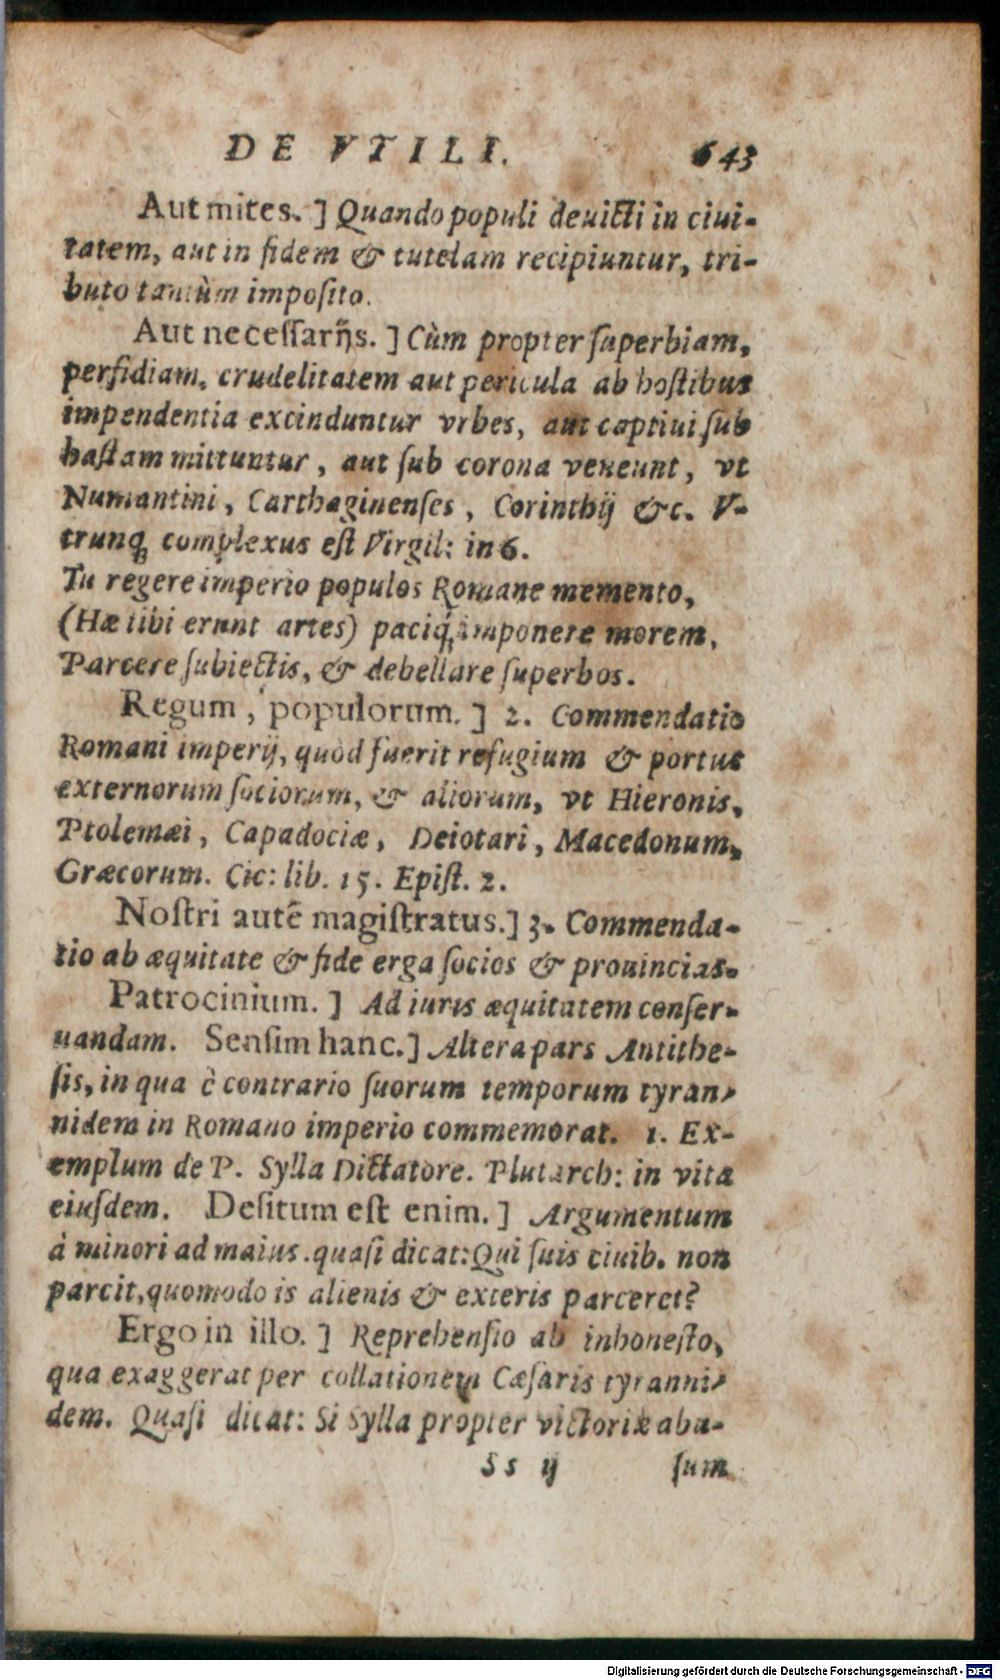 DE VTILI. 643
Aut mites. ] Quando populi deuicti in ciui-
tatem, aut in fidem & tutelam recipiuntur, tri-
buto tantùm imposito.
Aut necessarijs. ] Cùm propter superbiam,
perfidiam, crudelitatem aut pericula ab hostibus
impendentia excinduntur vrbes, aut captiui sub
hastam mittuntur, aut sub corona veneunt, vt
Numantini, Carthaginenses, Corinthij &c. V-
trunq; complexus est Virgil: in 6.
Tu regere imperio populos Romane memento,
(Hæ tibi erunt artes) paciq́; imponere morem,
Parcere subiectis, & debellare superbos.
Regum, populorum. ] 2. Commendatio
Romani imperij, quòd fuerit refugium & portus
externorum sociorum, & aliorum, vt Hieronis,
Ptolemæi, Capadociæ, Deiotari, Macedonum,
Græcorum. Cic: lib. 15. Epist. 2.
Nostri autē magistratus. ] 3. Commenda-
tio ab æquitate & fide erga socios & prouincias.
Patrocinium. ] Ad iuris æquitatem conser-
uandam. Sensim hanc. ] Altera pars Antithe-
sis, in qua è contrario suorum temporum tyran-
nidem in Romano imperio commemorat. 1. Ex-
emplum de P. Sylla Dictatore. Plutarch: in vita
eiusdem. Desitum est enim. ] Argumentum
à minori ad maius. quasi dicat: Qui suis ciuib. non
parcit, quomodo is alienis & exteris parceret?
Ergo in illo. ] Reprehensio ab inhonesto,
qua exaggerat per collationem Cæsaris tyranni-
dem. Quasi dicat: Si Sylla propter victoriæ abu-
Ss ij sum
Digitalisierung gefördert durch die Deutsche Forschungsgemeinschaft - DFG